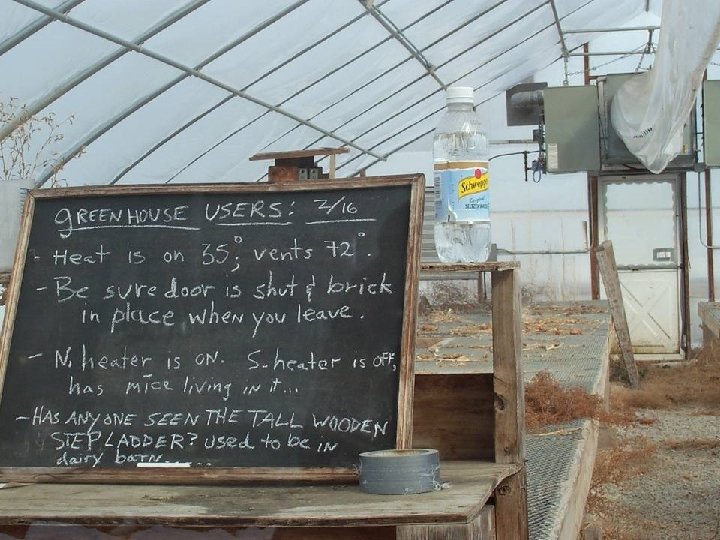 GREENHOUSE USERS: 2/16
- Heat is on 35°, vents 72°.
- Be sure door is shut & brick
in place when you leave.
- N. heater is on. S. heater is off,
has mice living in it...
- HAS ANYONE SEEN THE TALL WOODEN
STEPLADDER? used to be in
dairy barn......
Schweppes